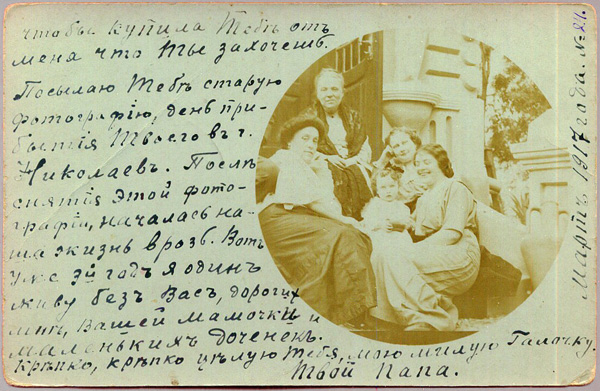 чтобы купила Тебѣ отъ
меня что Ты захочешь.
Посылаю Тебѣ старую
фотографію, день при-
бытія Твоего въ г.
Николаевъ. Послѣ
снятія этой фото-
графіи, началась на-
ша жизнь врозь. Вотъ
уже 3й годъ я одинъ
живу безъ Васъ, дорогихъ
мнѣ, Вашей мамочки и
маленькихъ доченекъ.
Крѣпко, крѣпко цѣлую Тебя, мою милую Галочку.
Твой Папа.
Мартъ, 1917 года. №21.